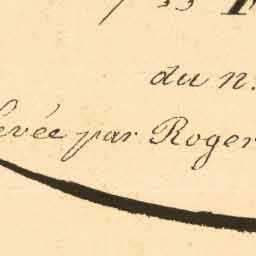 du n.
levée par Roger